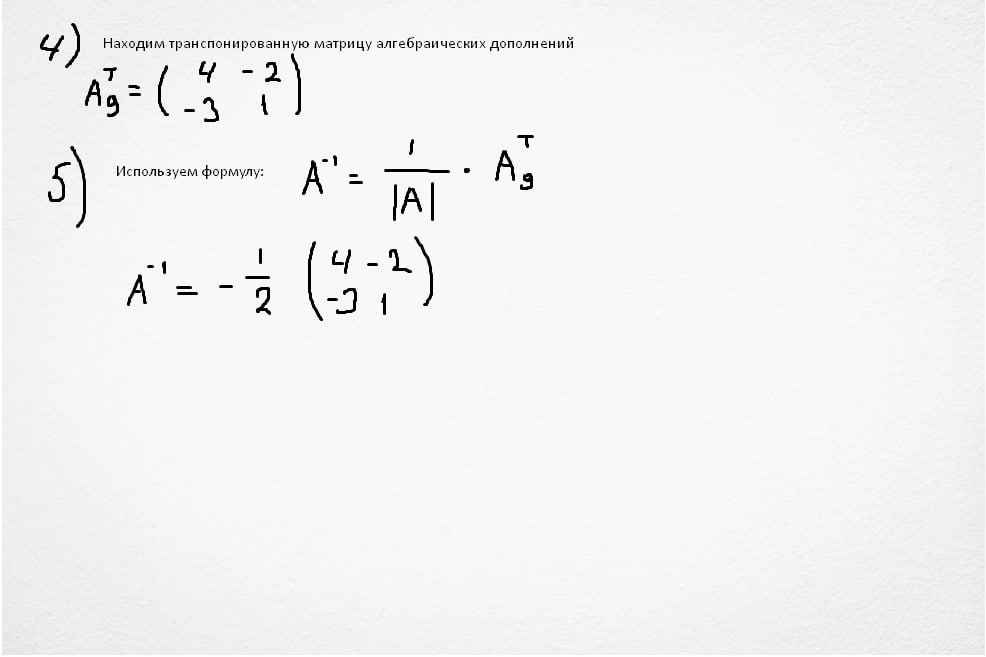 4) Находим транспонированную матрицу алгебраических дополнений
A_g^T = ( 4 -2
-3 1 )
5) Используем формулу: A^-1 = 1/|A| · A_g^T
A^-1 = - 1/2 ( 4 -2
-3 1 )